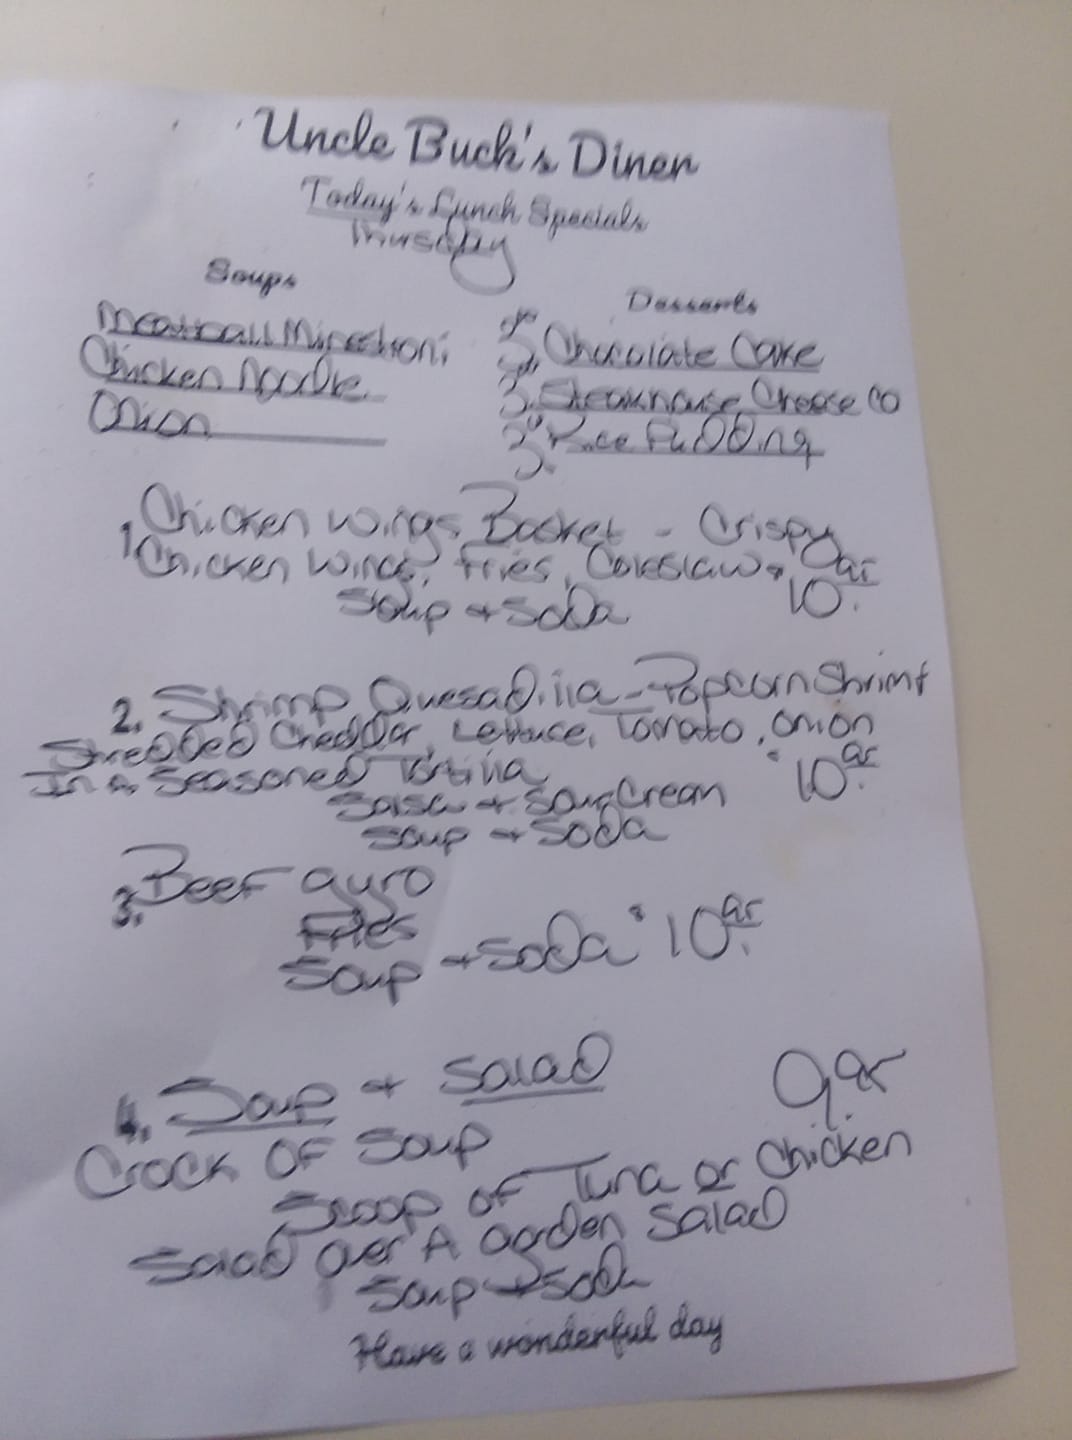 Uncle Buck's Diner
Today's Lunch Specials
Thursday
Soups
Meatball Minestroni
Chicken Noodle
Onion
Desserts
Chocolate Cake
Steakhouse Cheese Co
Rice Pudding
1. Chicken Wings Basket - Crispy
Chicken Wings, Fries, Coleslaw + 10.95
Soup + Soda
2. Shrimp Quesadilla - Popcorn Shrimp
Shredded Cheddar, Lettuce, Tomato, Onion
In a Seasoned Tortilla 10.95
Salsa + Sour Cream
Soup + Soda
3. Beef Gyro
Fries
Soup + Soda 10.95
4. Soup + Salad 9.95
Crock OF Soup
Scoop of Tuna or Chicken
Salad over A Garden Salad
Soup + Soda
Have a wonderful day